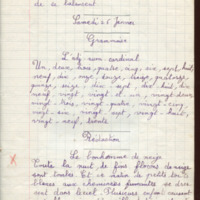 de se balancent
Samedi 26 Janvier
Grammaire
L'adj. num. cardinal
Un, deux, trois, quatre, cinq, six, sept, huit,
neuf, dix, onze, douze, treize, quatorze,
quinze, seize, dix-sept, dix-huit, dix-
neuf, vingt, vingt et un, vingt-deux,
vingt-trois, vingt-quatre, vingt-cinq,
vingt-six, vingt-sept, vingt-huit,
vingt-neuf, trente
Rédaction
Le bonhomme de neige
Toute la nuit de fins flocons de neige
sont tombés. Et ce matin de petits
places aux cheminées fumantes se dres-
sent dans le val. Plusieurs enfants causent